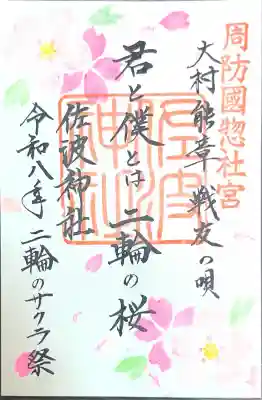 周防國惣社宮
大村能章 戦友の唄
君と僕とは二輪の桜
佐波神社
令和八年 二輪のサクラ祭
佐波神社